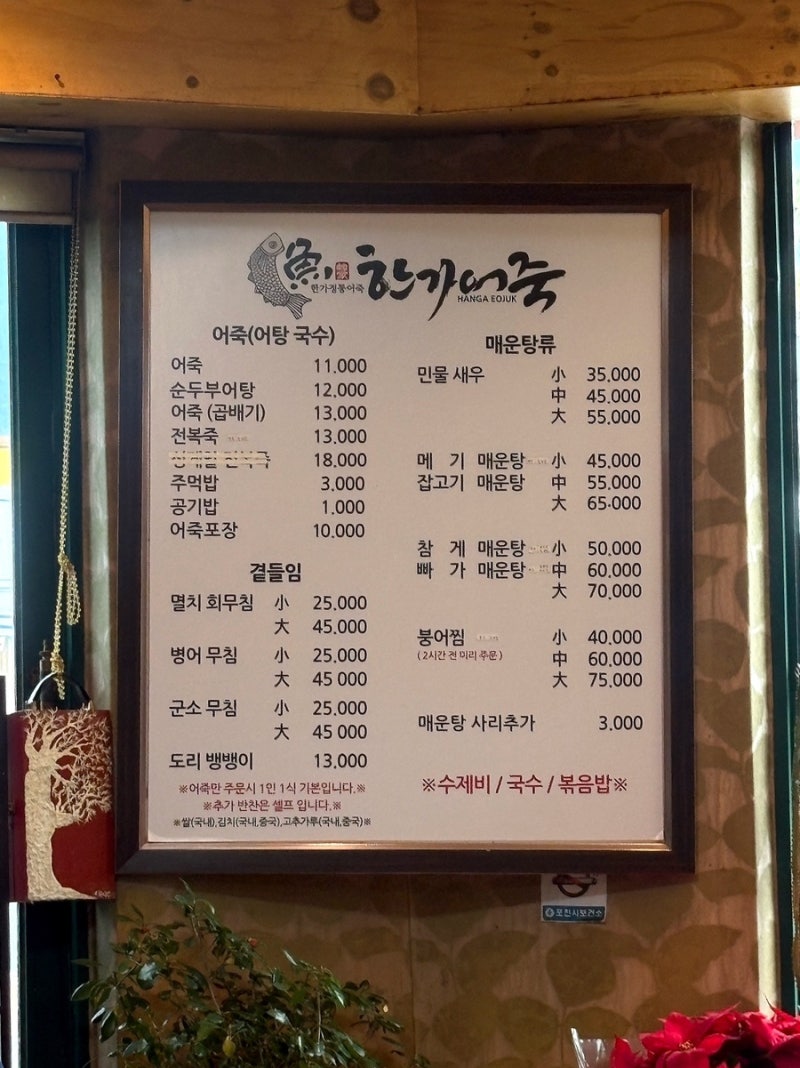 魚
한가정통어죽
한가어죽
HANGA EOJUK
어죽(어탕 국수)
어죽 11,000
순두부어탕 12,000
어죽 (곱배기) 13,000
전복죽 13,000
18,000
주먹밥 3,000
공기밥 1,000
어죽포장 10,000
곁들임
멸치 회무침 小 25,000
大 45,000
병어 무침 小 25,000
大 45 000
군소 무침 小 25,000
大 45 000
도리 뱅뱅이 13,000
※어죽만 주문시 1인 1식 기본입니다.※
※추가 반찬은 셀프 입니다.※
※쌀(국내),김치(국내,중국),고추가루(국내,중국)※
매운탕류
민물 새우 小 35,000
中 45,000
大 55,000
메 기 매운탕 小 45,000
잡고기 매운탕 中 55,000
大 65,000
참 게 매운탕 小 50,000
빠 가 매운탕 中 60,000
大 70,000
붕어찜 小 40,000
(2시간 전 미리 주문) 中 60,000
大 75,000
매운탕 사리추가 3,000
※수제비 / 국수 / 볶음밥※
포천시보건소